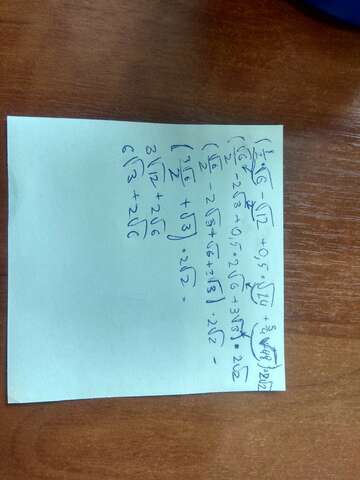 (1/2 √6 - √12 + 0,5 · √24 + 3/4 √48) · 2√2
(√6/2 - 2√3 + 0,5 · 2√6 + 3√3) · 2√2
(√6/2 - 2√3 + √6 + 3√3) · 2√2 =
(3√6/2 + √3) · 2√2 =
3√12 + 2√6
6√3 + 2√6